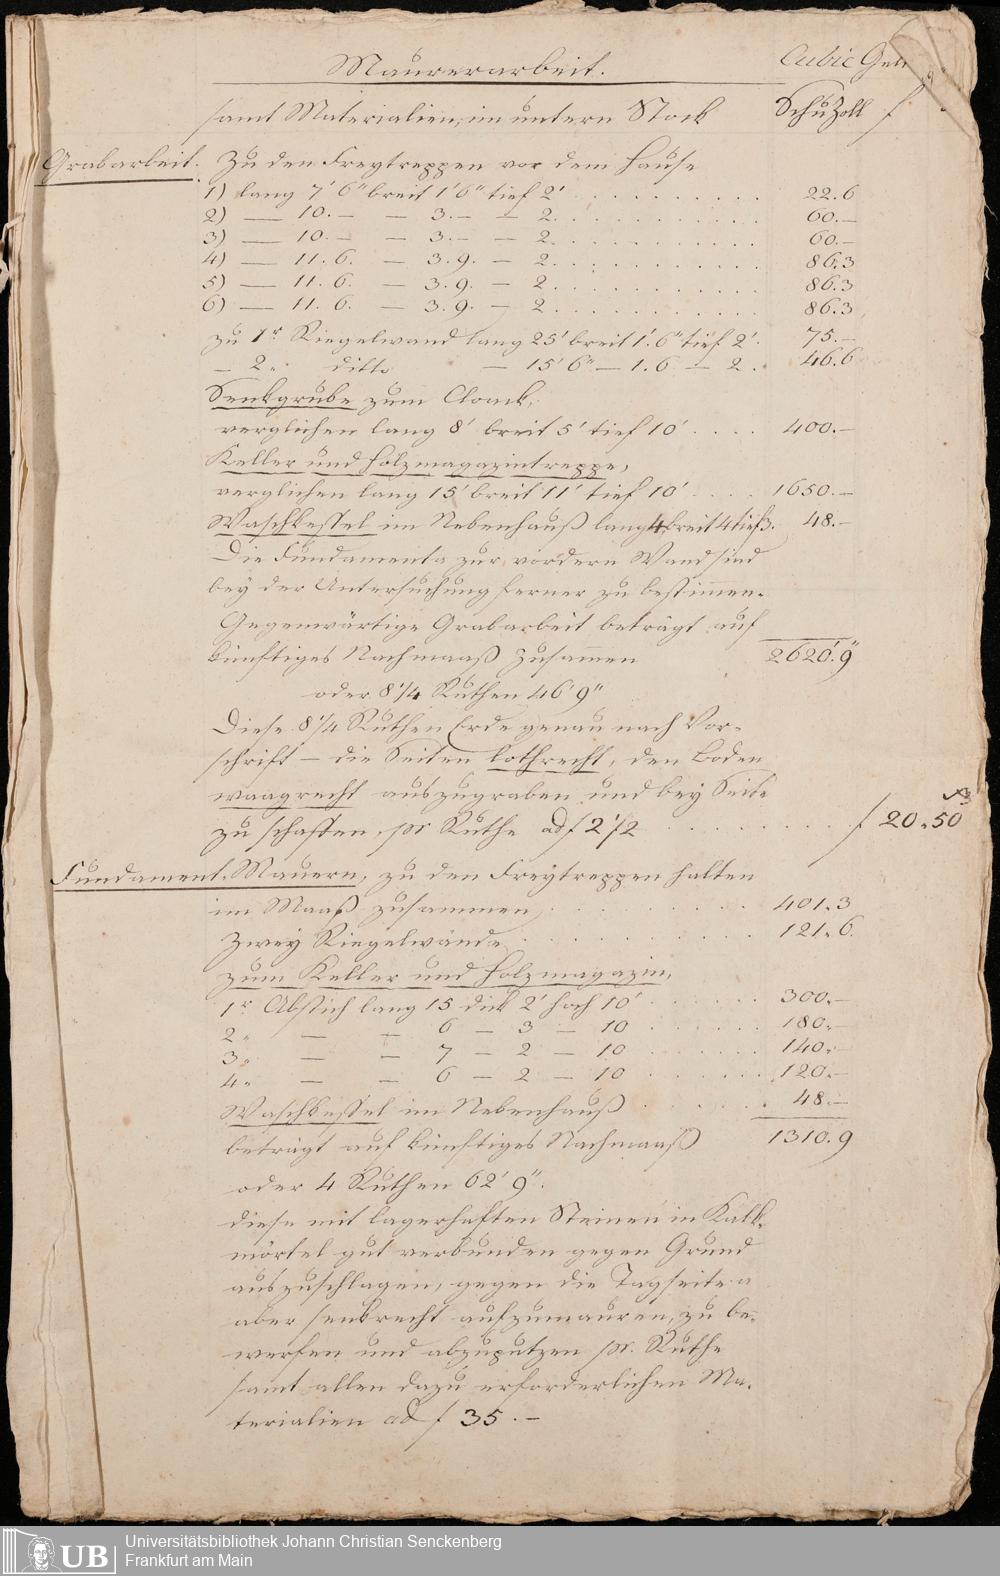 Maurerarbeit. Cubic Gel
samt Materialien, im untern Stock Schu Zoll f
Grabarbeit. Zu den Freytreppen vor dem Hause
1) lang 7' 6" breit 1' 6" tief 2' . . . . . . . . . 22.6
2) — 10. – – 3. – – 2. . . . . . . . . . 60.–
3) — 10. – – 3. – – 2. . . . . . . . . . 60.–
4) — 11. 6. – 3. 9. – 2. . . . . . . . . . 86.3
5) — 11. 6. – 3. 9. – 2. . . . . . . . . . 86.3
6) — 11. 6. – 3. 9. – 2. . . . . . . . . . 86.3
zu 1r Riegelwand lang 25' breit 1'. 6" tief 2'. 75.–
– 2" ditto – 15' 6" – 1. 6 – 2 . 46.6
Senkgrube zum Cloack,
verglichen lang 8' breit 5' tief 10' . . . . 400.–
Keller und Holzmagazintreppe,
verglichen lang 15' breit 11' tief 10' . . . . 1650.–
Waschkessel im Nebenhauß lang 4 breit 4 tief 3. 48.–
Die Fundamenta zur vordern Wand sind
bey der Untersuchung ferner zu bestimmen.
Gegenwärtige Grabarbeit beträgt auf
künftiges Nachmaaß zusammen 2620'. 9"
oder 8 1/4 Ruthen 46' 9"
Diese 8 1/4 Ruthen Erde genau nach Vor-
schrift – die Seiten lothrecht, den Boden
waagrecht auszugraben und bey Seite
zu schaffen, pr Ruthe ad f 2 1/2 . . . . . . . . f 20.50
Fundament-Mauern, zu den Freytreppen halten
im Maaß zusammen, . . . . . . . . 401.3
Zwey Riegelwände . . . . . . . . . 121.6.
zum Keller und Holzmagazin,
1r Abstich lang 15 dick 2' hoch 10' . . . . . . 300.–
2" — – 6 – 3 – 10 . . . . . . 180.–
3" — – 7 – 2 – 10 . . . . . . 140.–
4" — – 6 – 2 – 10 . . . . . . 120.–
Waschkessel im Nebenhauß . . . . . . 48.–
beträgt auf künftiges Nachmaaß 1310.9
oder 4 Ruthen 62' 9".
diese mit lagerhaften Steinen in Kalk-
mörtel gut verbunden gegen Grund
auszuschlagen, gegen die Tagseite
aber senkrecht aufzumauren, zu be-
werfen und abzuputzen pr. Ruthe
samt allen dazu erforderlichen Ma-
terialien ad f 35 . –
UB Universitätsbibliothek Johann Christian Senckenberg
Frankfurt am Main